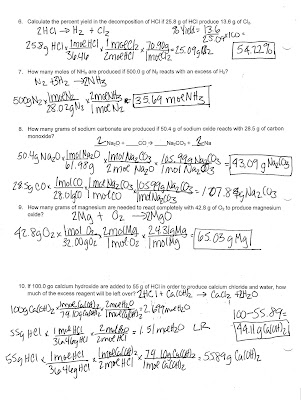 6. Calculate the percent yield in the decomposition of HCl if 25.8 g of HCl produce 13.6 g of Cl₂.
2HCl → H₂ + Cl₂ % Yield = 13.6 / 25.09 × 100 =
25.8g HCl × 1 mol HCl / 36.46 × 1 mol Cl₂ / 2 mol HCl × 70.90g / 1 mol Cl₂ = 25.09g Cl₂ 54.22%
7. How many moles of NH₃ are produced if 500.0 g of N₂ reacts with an excess of H₂?
N₂ + 3H₂ → 2NH₃
500g N₂ × 1 mol N₂ / 28.02g N₂ × 2 mol NH₃ / 1 mol N₂ = 35.69 mol NH₃
8. How many grams of sodium carbonate are produced if 50.4 g of sodium oxide reacts with 28.5 g of carbon
monoxide? 2 Na₂O + __CO → __Na₂CO₃ + 2 Na
50.4g Na₂O × 1 mol Na₂O / 61.98g × 1 mol Na₂CO₃ / 2 mol Na₂O × 105.99g Na₂CO₃ / 1 mol Na₂CO₃ = 43.09g Na₂CO₃
28.5g CO × 1 mol CO / 28.01g CO × 1 mol Na₂CO₃ / 1 mol CO × 105.99g Na₂CO₃ / 1 mol Na₂CO₃ = 107.84g Na₂CO₃
9. How many grams of magnesium are needed to react completely with 42.8 g of O₂ to produce magnesium
oxide? 2Mg + O₂ → 2MgO
42.8g O₂ × 1 mol O₂ / 32.00g O₂ × 2 mol Mg / 1 mol O₂ × 24.31g Mg / 1 mol Mg = 65.03g Mg
10. If 100.0 go calcium hydroxide are added to 55 g of HCl in order to produce calcium chloride and water, how
much of the excess reagent will be left over? 2HCl + Ca(OH)₂ → CaCl₂ + 2H₂O
100g Ca(OH)₂ × 1 mol Ca(OH)₂ / 74.10g Ca(OH)₂ × 2 mol H₂O / 1 mol Ca(OH)₂ = 2.699 mol H₂O 100-55.89=
55g HCl × 1 mol HCl / 36.46g HCl × 2 mol H₂O / 2 mol HCl = 1.51 mol H₂O LR 44.11g Ca(OH)₂
55g HCl × 1 mol HCl / 36.46g HCl × 1 mol Ca(OH)₂ / 2 mol HCl × 74.10g Ca(OH)₂ / 1 mol Ca(OH)₂ = 55.89g Ca(OH)₂